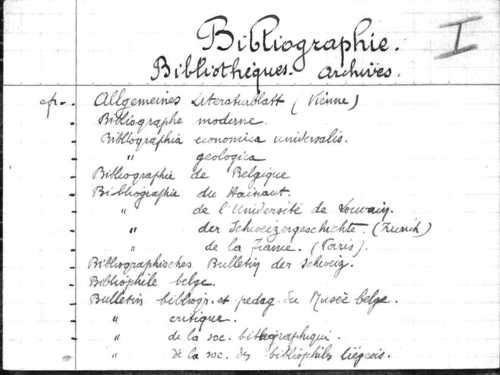 Bibliographie.
I
Bibliothèques. Archives.
cfr. Allgemeines Literaturblatt (Vienne)
- Bibliographe moderne.
- Bibliographia economica universalis.
- " geologica
- Bibliographie de Belgique
- Bibliographie du Hainaut.
- " de l'Université de Louvain.
- " der Schweizergeschichte. (Zurich)
- " de la France. (Paris).
- Bibliographisches Bulletin der Schweiz.
- Bibliophile belge.
- Bulletin bibliogr. et pedag. du Musée belge.
- " critique.
- " de la soc. bibliographiqui.
- " de la soc. des bibliophiles liégeois.